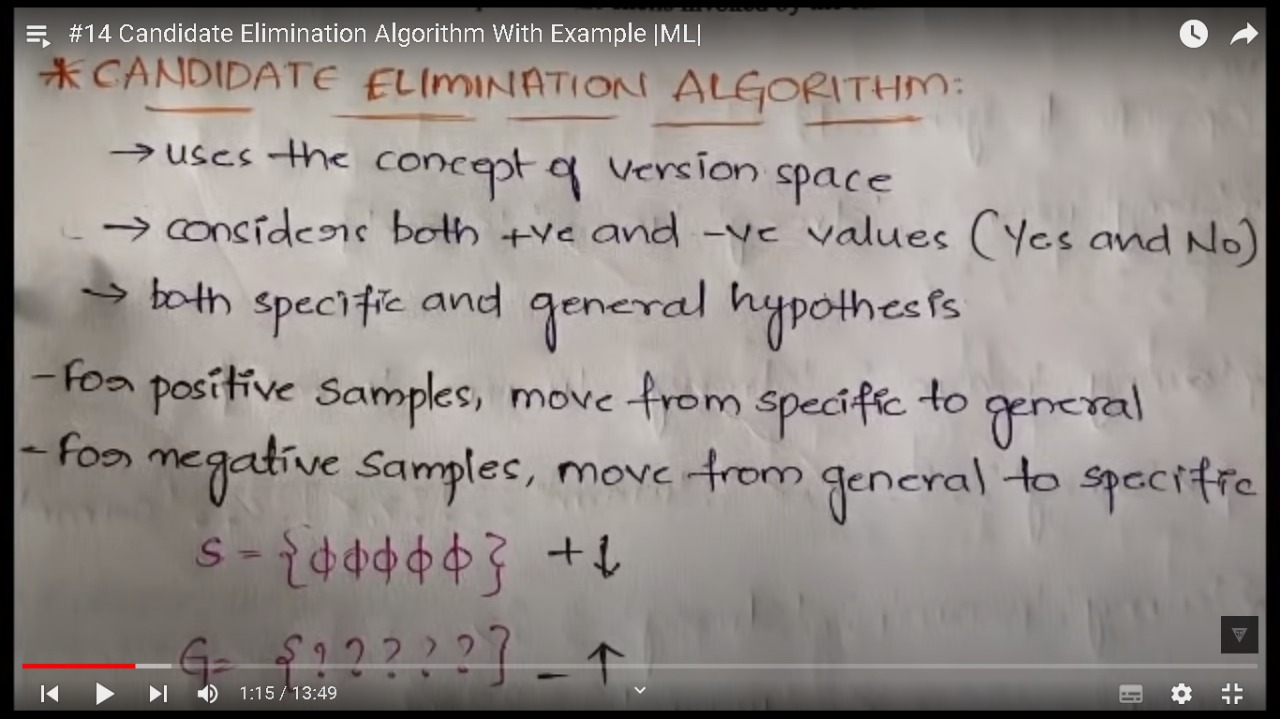 #14 Candidate Elimination Algorithm With Example |ML|
* CANDIDATE ELIMINATION ALGORITHM:
→ uses the concept of version space
→ considers both +ve and -ve values (Yes and No)
→ both specific and general hypothesis
- For positive samples, move from specific to general
- For negative samples, move from general to specific
S = {ϕ ϕ ϕ ϕ ϕ} + ↓
G = {? ? ? ? ?} - ↑
1:15 / 13:49